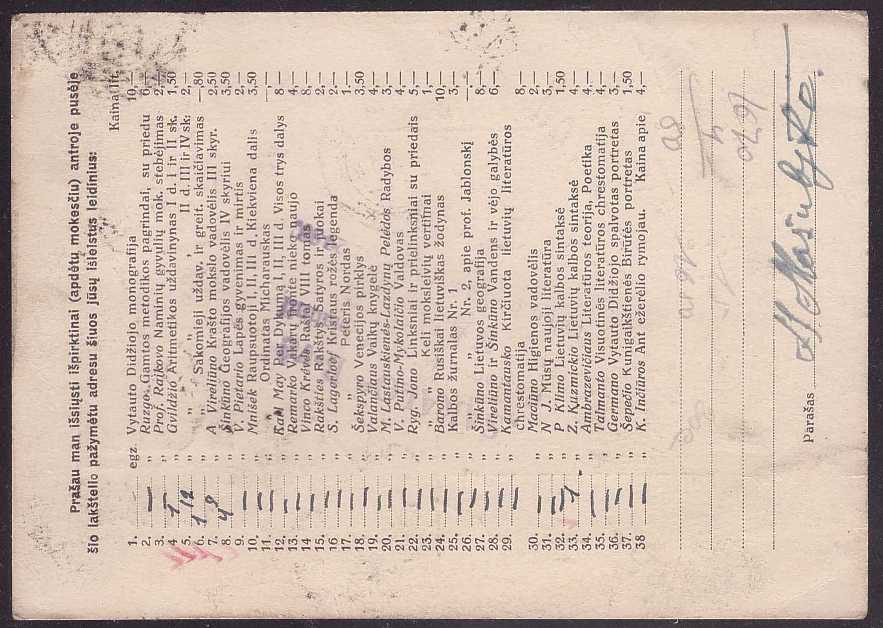 Prašau man išsiųsti išpirktinai (apdėtų mokesčiu) antroje pusėje
šio lakštelio pažymėtu adresu šiuos jūsų išleistus leidinius:
Kaina Lt.
1. egz Vytauto Didžiojo monografija 10,—
2. — „ Ruzgo Gamtos metodikos pagrindai, su priedu 6,—
3. — „ Prof. Raikovo Naminių gyvulių mok. stebėjimas 2,—
4 1 „ Gvildžio Aritmetikos uždavinynas I d. I ir II sk. 1,50
5. „ „ „ II d. III ir IV sk: 2,—
6. „ „ Sakomieji uždav. ir greit. skaičiavimas —,80
7. „ A Vireliūno Krašto mokslo vadovėlis III skyr. 2,50
8. 4 „ Šinkūno Geografijos vadovėlis IV skyriui 3,50
9. — „ V. Pietario Lapės gyvenimas ir mirtis 2,—
10. — „ Mnišek Raupsuotoji I, II, III d. Kiekviena dalis 3,50
11. — „ „ Ordinatas Micharauskas
12. — „ Karl May Per Dykumą I, II, III d. Visos trys dalys 8,—
13. — „ Remarko Vakarų fronte nieko naujo 4,—
14 — „ Vinco Krėvės Raštai VIII tomas 8,—
15. — „ Rakšties Rakštys Satyros ir juokai 2,—
16 — „ S. Lagerloef Kristaus rožės legenda 2.—
17. — „ „ Peteris Nordas 1,—
18. — „ Šekspyro Venecijos pirklys 3,50
19. — „ Valančiaus Vaikų knygelė 4,—
20. — „ M. Lastauskienės-Lazdynų Pelėdos Radybos 3,—
21. — „ V. Putino-Mykolaičio Valdovas 4,—
22. — „ Ryg. Jono Linksniai ir prielinksniai su priedais 5,—
23. — „ „ Keli moksleivių vertimai 1,—
24. — „ Barono Rusiškai lietuviškas žodynas 10,—
25. — „ Kalbos žurnalas Nr. 1 3,—
26. — „ „ „ Nr. 2, apie prof. Jablonskį
27. — „ Šinkūno Lietuvos geografija 8,—
28. — „ Vireliūno ir Šinkūno Vandens ir vėjo galybės 6,—
29. — „ Kamantausko Kirčiuota lietuvių literatūros
chrestomatija 8,—
30. — „ Maciūno Higienos vadovėlis 2,—
31. — „ N J. Mūsų naujoji literatūra 3,—
32. — „ P Klimo Lietuvių kalbos sintaksė 1,50
33. 1. „ Z. Kuzmickio Lietuvių kalbos sintaksė 4,—
34. „ Ambrazevičiaus Literatūros teorija. Poetika 4,—
35. — „ Talmanto Visuotinės literatūros chrestomatija 4,—
36. — „ Germano Vytauto Didžiojo spalvotas portretas 3,—
37. — „ Šepečio Kunigaikštienės Birutės portretas 1,50
38 — „ K. Inčiūros Ant ežerėlio rymojau. Kaina apie 4,—
Parašas